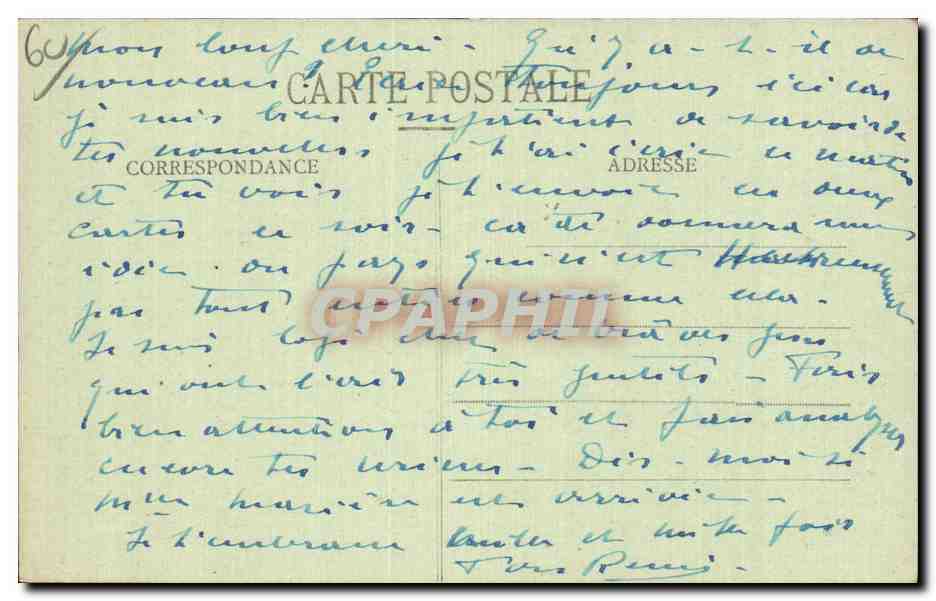 60
Mon loup chéri - Qu'y a-t-il de
nouveau? Rien toujours ici car
CARTE POSTALE
je suis bien impatient de savoir de
tes nouvelles je t'ai écrit ce matin
CORRESPONDANCE
ADRESSE
et tu vois je t'envoie en deux
cartes ce soir - ça te donnera une
idée du pays qui n'est Heureusement
pas tout entier comme cela -
CPAPHIL
Je suis logé chez de braves gens
qui ont l'air très gentils - Fais
bien attention à toi et fais analyser
encore tes urines - Dis-moi si
Mme est arrivée -
Je t'embrasse mille et mille fois
Ton Rémi -